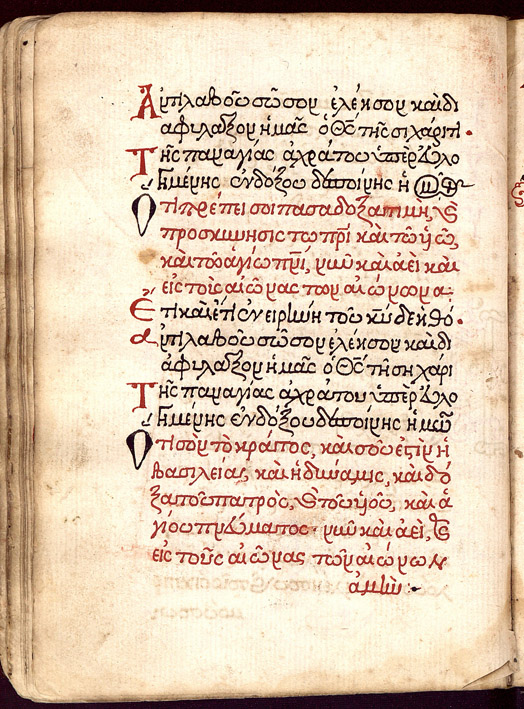 Ἀντιλαβοῦ σῶσον ἐλέησον και δι
αφιλαξον ημᾶς ὁ Θς τῆ σι χάριτι.
Τῆς παναγίας ἀχράντου ὑπερ ἐυλο
γημένης ἐνδόξου δεσποίνης ἡ
Ὅτι πρέπει σοι πασα δοξα τιμη, κ
προσκυνησις τω πρι και τῶ υἱῶ,
και τῶ ἁγίω πνι, νυν και αεὶ και
εις τοὺς αιωνας των αιωνωνα:
Ἔτι και ἔτι ἐν ειρίνη του κυ δεηθο.
αντιλαβοῦ σῶσον ἐλέησον και δι
αφιλαξον ημᾶς ὁ Θς τῆ ση χάρι
Τῆς παναγίας ἀχράντου ὑπερ ἐυλο
γημένης ἐνδόξου δεσποίνης ἡμῶ
Ὅτι σὸν τὸ κράτος, και σοῦ ἐστὶν ἡ
βασιλείας, και ἡ δύναμις, και δό
ξα τοῦ πατρὸς, κ τοῦ υἱοῦ, και ἁ
γίου πνέυματος νυν και αεὶ, κ
εις τοὺς αιῶνας τῶν αιώνων
ἀμὶν: